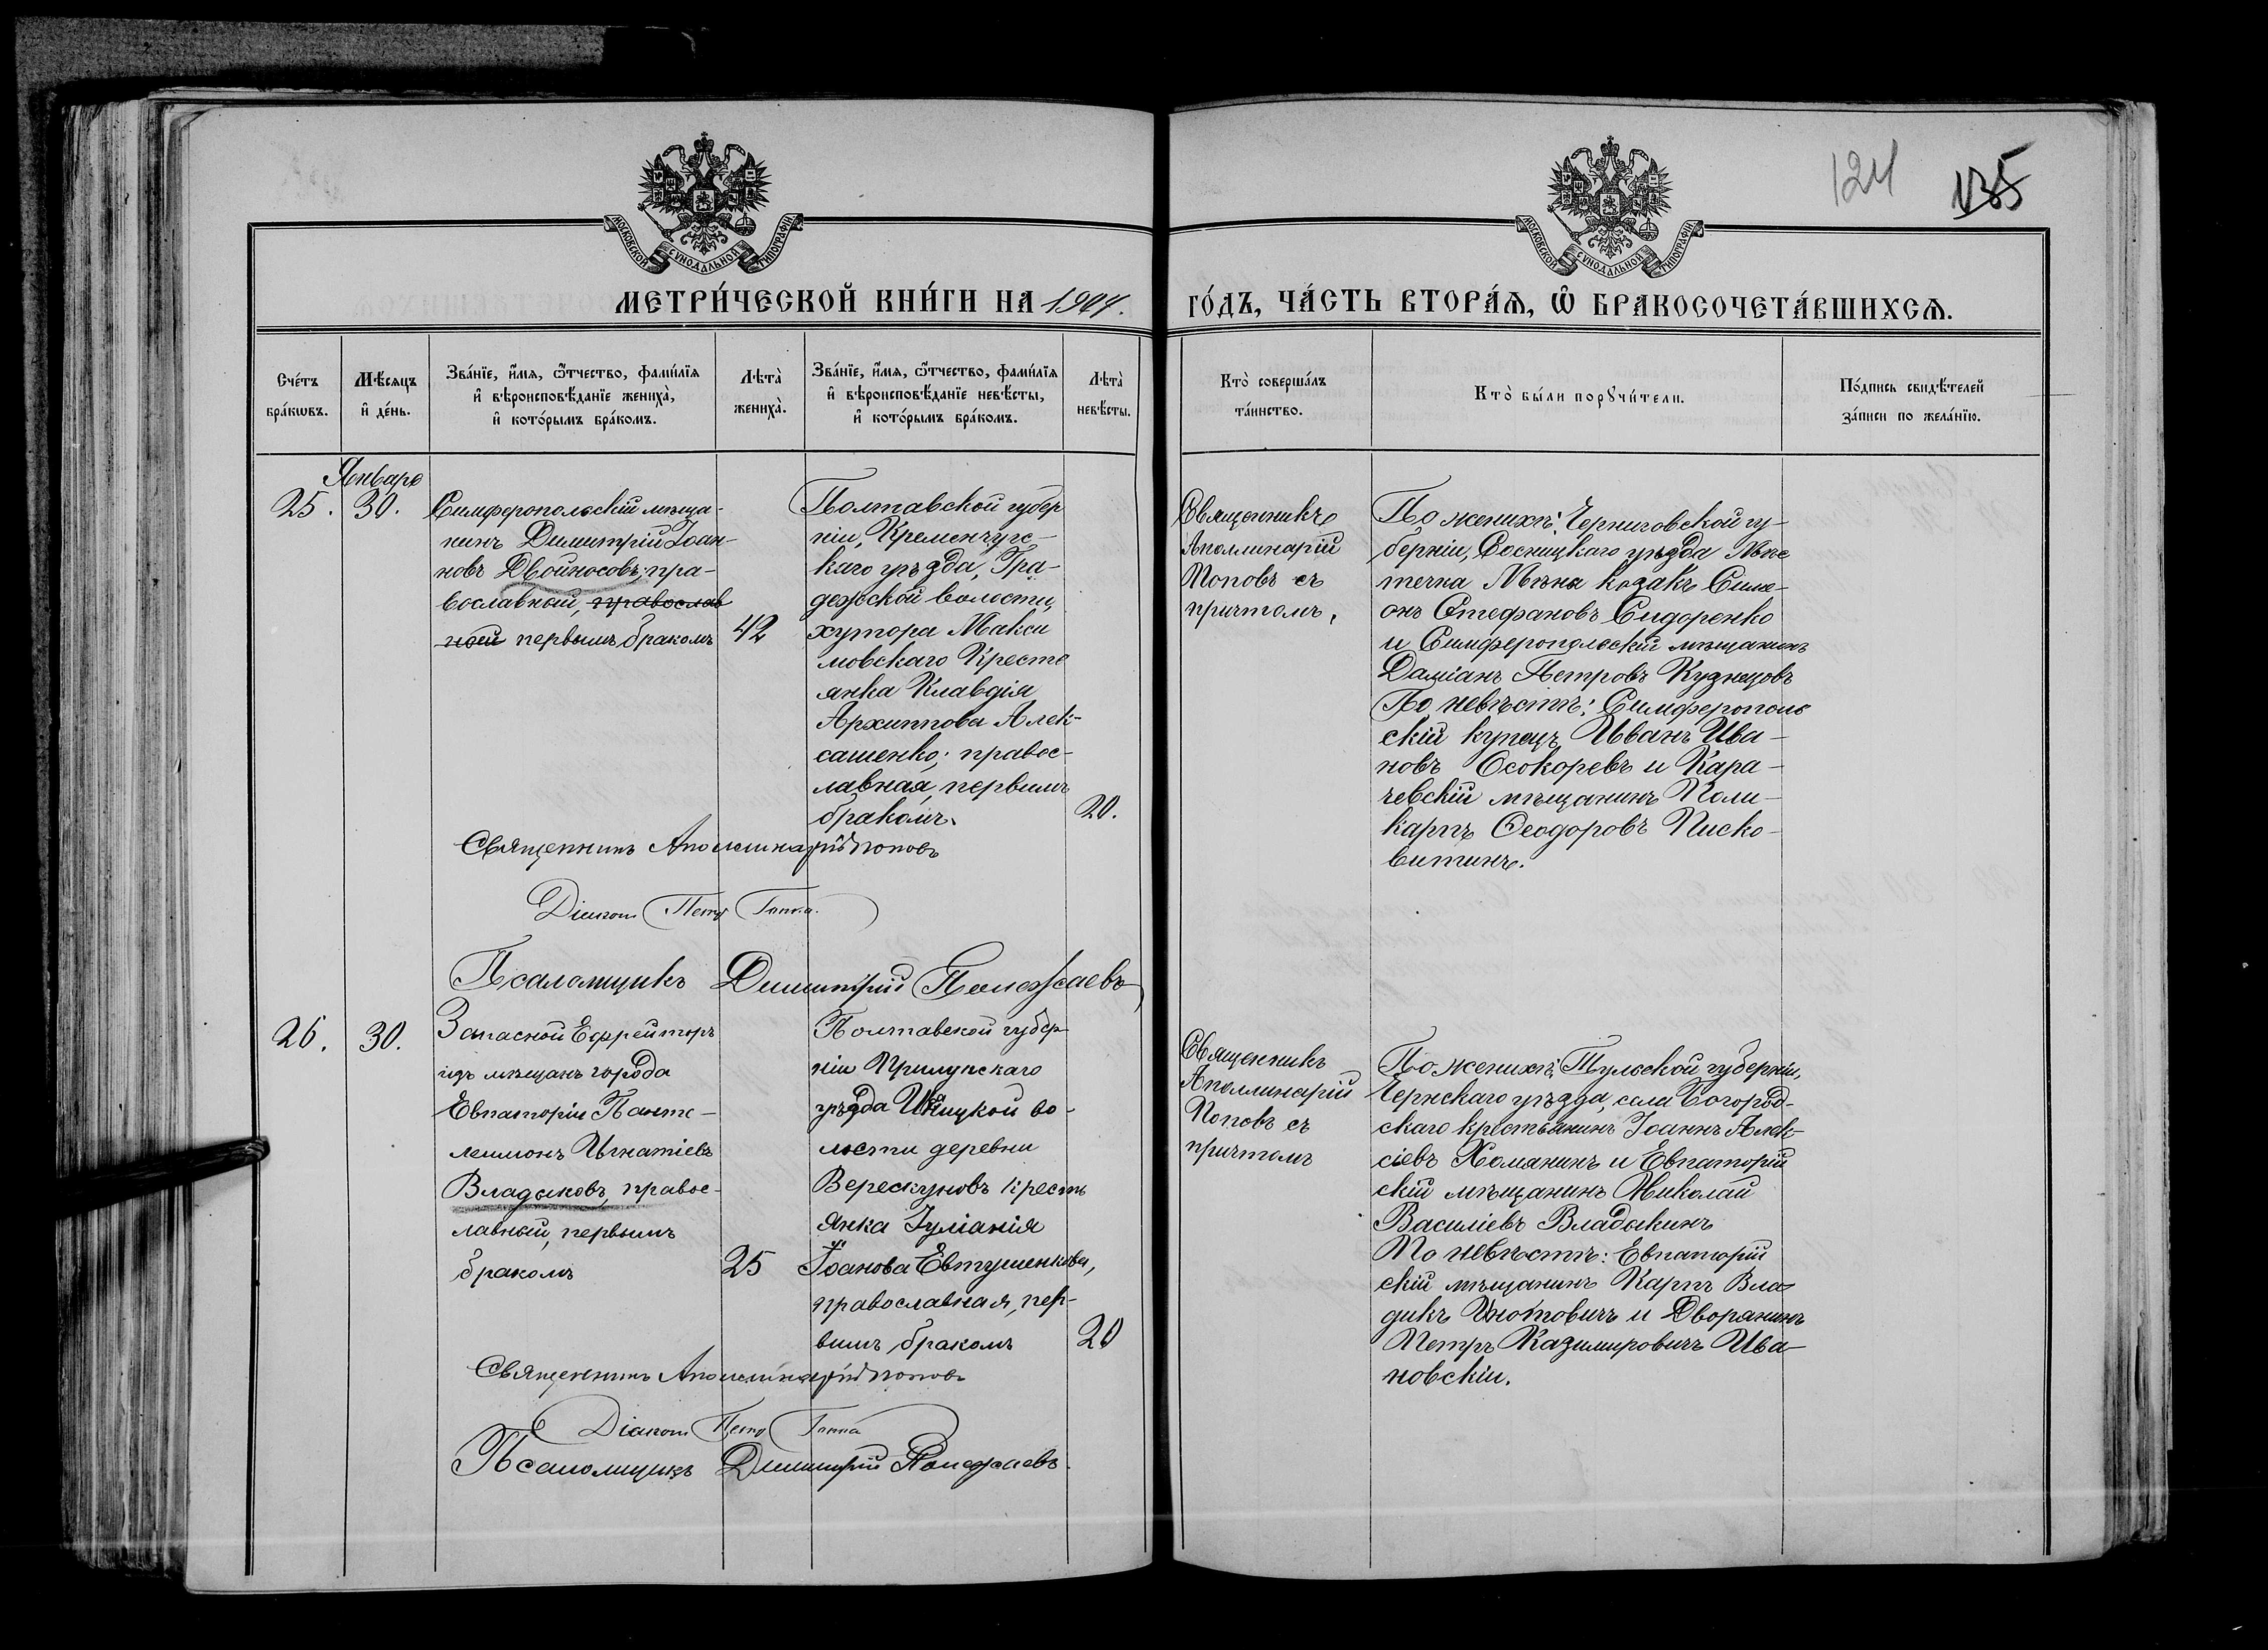 124 135
МОСКОВСКОЙ СѴНОДАЛЬНОЙ ТИПОГРАФІИ
МОСКОВСКОЙ СѴНОДАЛЬНОЙ ТИПОГРАФІИ
МЕТРИ́ЧЕСКОЙ КНИ́ГИ НА 1904.
ГО́ДЪ, ЧА́СТЬ ВТОРА́Ѧ, Ѡ҆ БРАКОСОЧЕТА́ВШИХСѦ.
Сче́тъ
бра́кωвъ.
Мѣ́сѧцъ
и҆ де́нь.
Зва́нїе, и҆́мѧ, ѻ҆́тчество, фами́лїѧ
и҆ вѣроисповѣ́данїе жениха̀,
и҆ кото́рымъ бра́комъ.
Лѣта̀
жениха̀.
Зва́нїе, и҆́мѧ, ѻ҆́тчество, фами́лїѧ
и҆ вѣроисповѣ́данїе невѣ́сты,
и҆ кото́рымъ бра́комъ.
Лѣта̀
невѣ́сты.
Кто̀ соверша́лъ
та́инство.
Кто̀ бы́ли порꙋчи́тели.
По́дпись свидѣ́телей
за́писи по жела́нїю.
Январь
25. 30.
Симферопольскій мѣща-
нинъ Димитрій Іоан-
новъ Двойносовъ; пра-
вославный, православ
ной первымъ бракомъ 42
Полтавской губер
ніи, Кременчугс-
каго уѣзда, Гра-
дежской волости,
хутора Макси
мовскаго Кресть
янка Клавдія
Архиппова Алек-
сашенко; правос-
лавная, первымъ
бракомъ. 20.
Священникъ
Аполлинарій
Поповъ съ
причтомъ.
По женихѣ: Черниговской гу-
берніи, Сосницкаго уѣзда Мѣс
течка Мѣна козакъ Симе-
онъ Стефановъ Сидоренко
и Симферопольскій мѣщанинъ
Даміанъ Петровъ Кузнецовъ
По невѣстѣ: Симферополь
скій купецъ Иванъ Ива-
новъ Осокоревъ и Кара-
чевскій мѣщанинъ Поли-
карпъ Ѳеодоровъ Писко-
витинъ.
Священникъ Аполлинарій Поповъ
Діаконъ Петр
Псаломщикъ Димитрій Полежаевъ
26. 30.
Запасной Ефрейторъ
изъ мѣщанъ города
Евпаторіи Панте-
леимонъ Игнатіевъ
Владыковъ, правос-
лавный, первымъ
бракомъ 25
Полтавской губер-
ніи Прилукскаго
уѣзда Иваницкой во-
лости деревни
Верескуновъ кресть
янка Іуліанія
Іоанова Евтушенкова,
православная, пер-
вымъ бракомъ 20
Священникъ
Аполлинарій
Поповъ съ
причтомъ
По женихѣ: Тульской губерніи,
Чернскаго уѣзда, села Богород-
скаго крестьянинъ Іоаннъ Алек-
сіевъ Хомянинъ и Евпаторій
скій мѣщанинъ Николай
Василіевъ Владыкинъ
По невѣстѣ: Евпаторій
скій мѣщанинъ Карпъ Вла
дикъ и Дворянинъ
Петръ Казимировичъ Ива-
новскій.
Священникъ Аполлинарій Поповъ
Діаконъ Петр
Псаломщикъ Димитрій Полежаевъ.